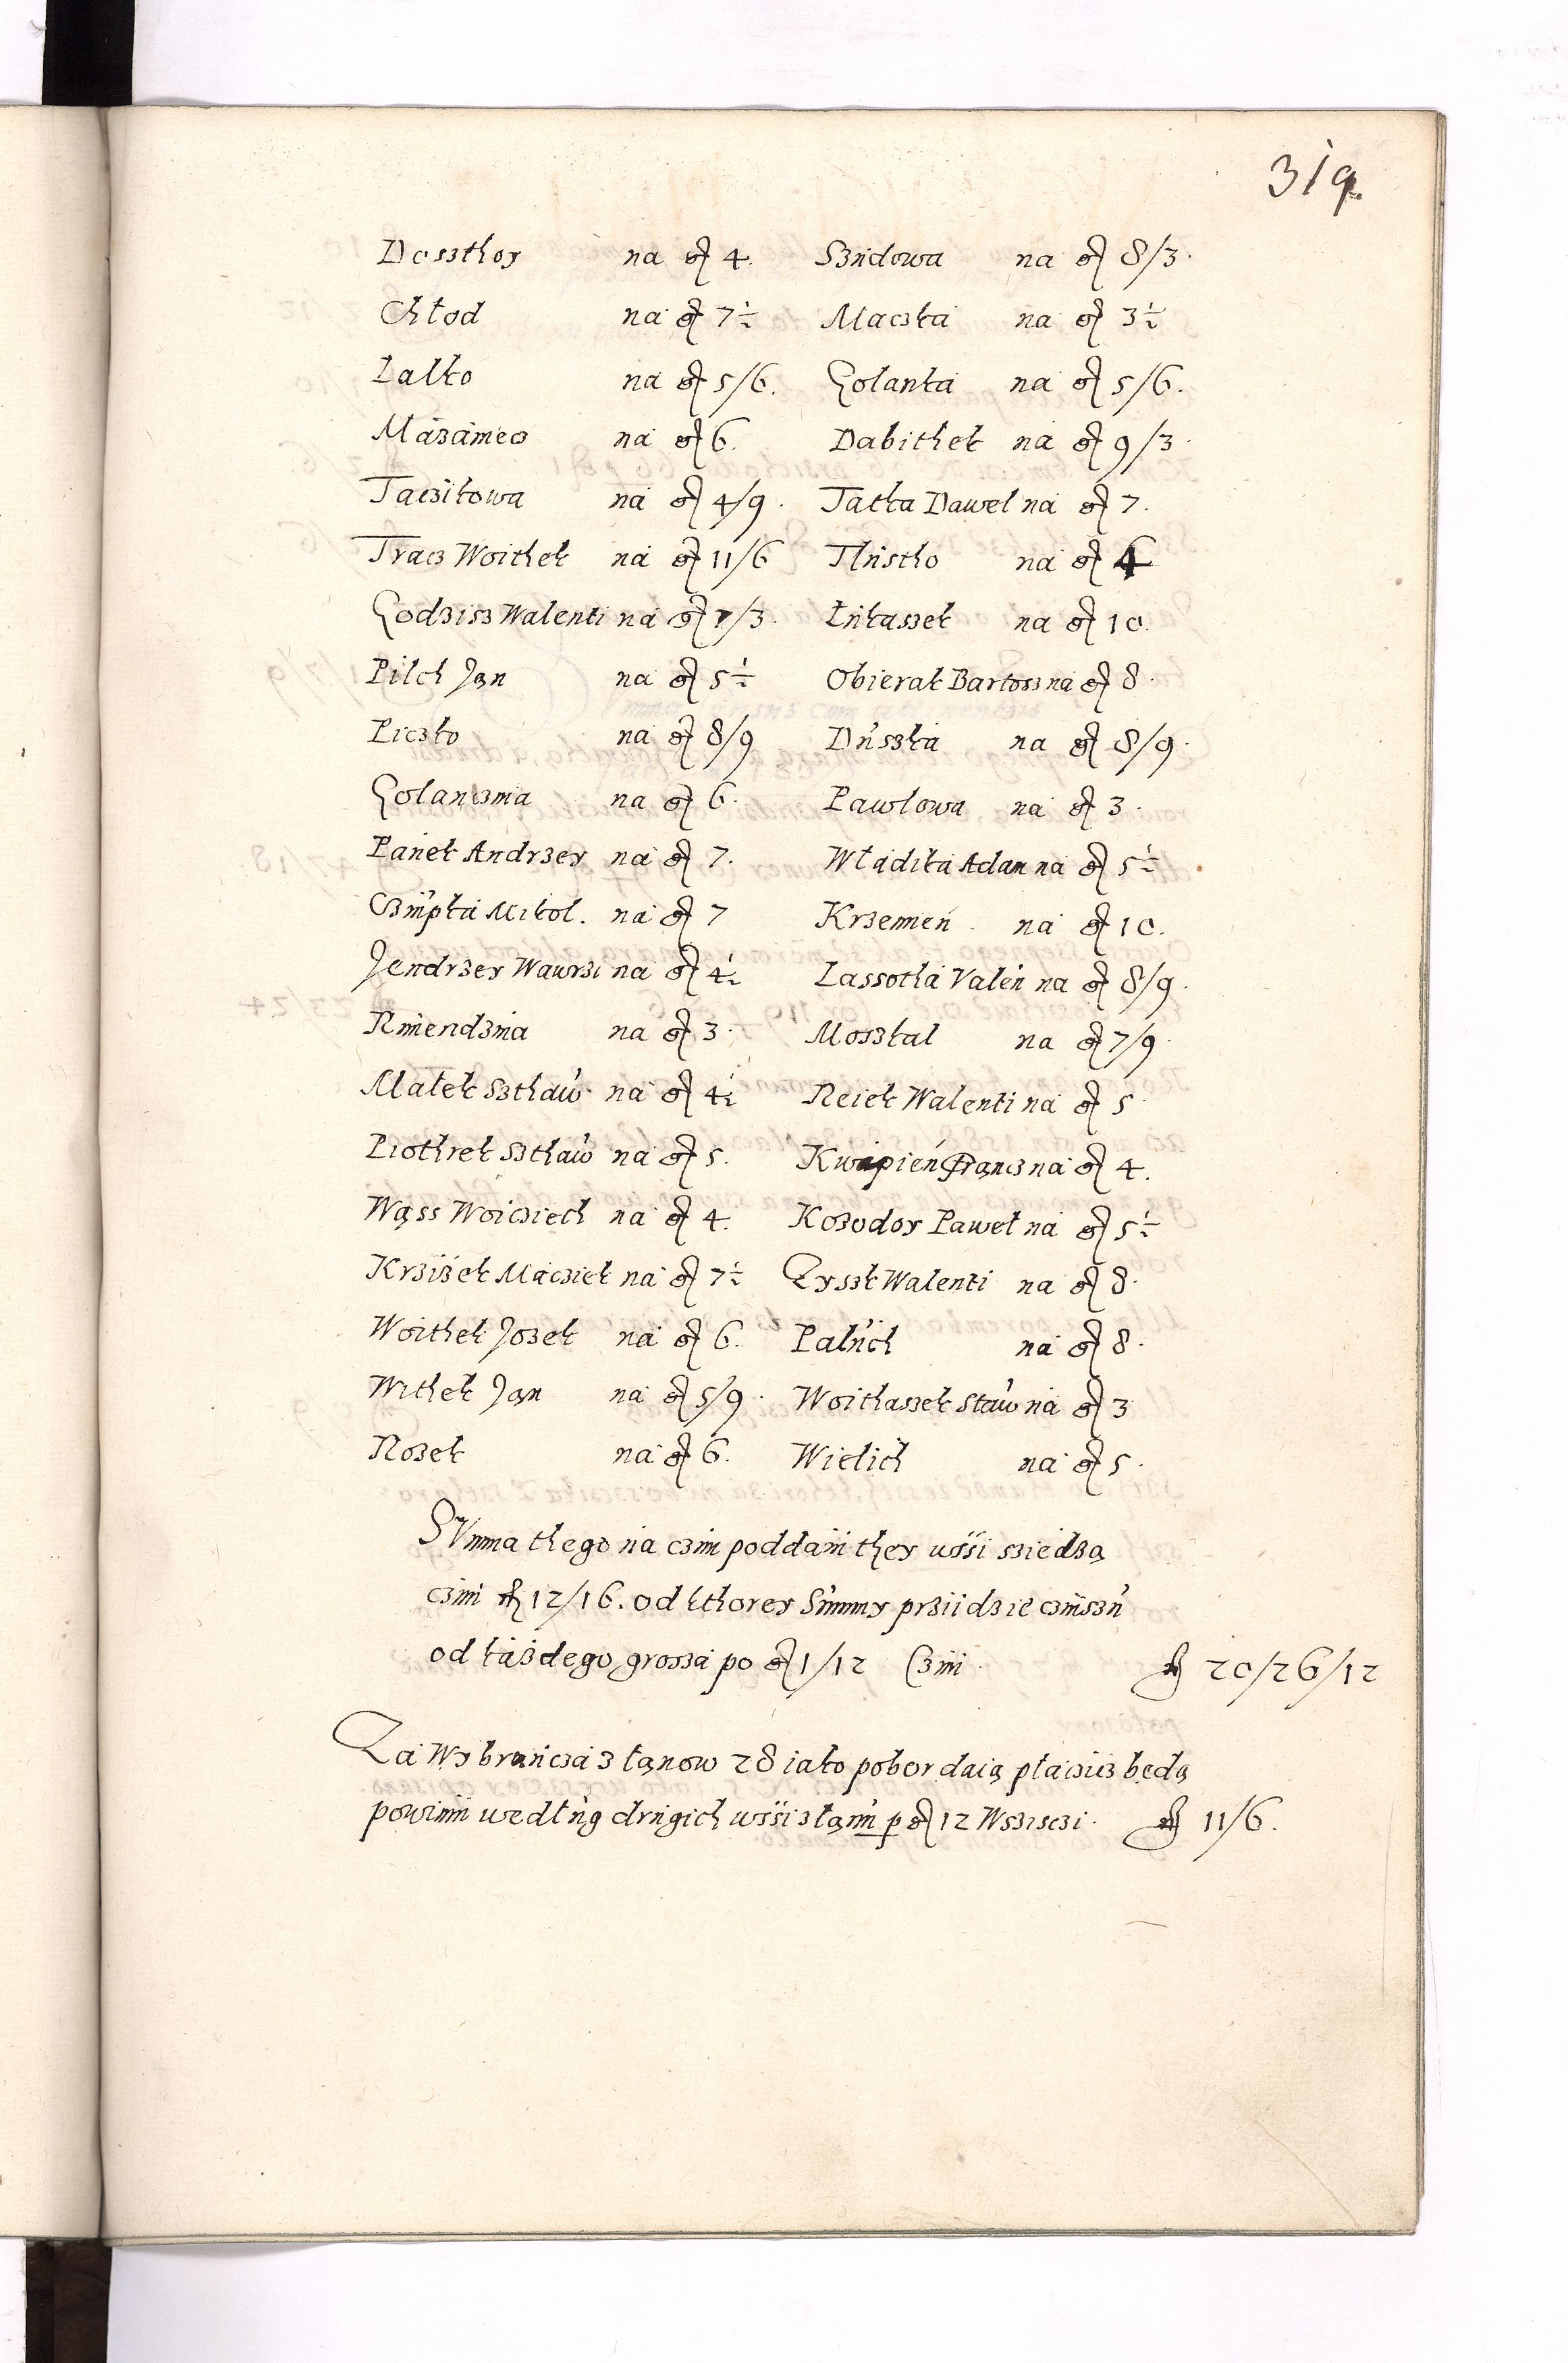 319.
Doszthoy na gr 4. Szudowa na gr 8/3.
Chłod na gr 7½ Maczka na gr 3½
Lalko na gr 5/6. Golanka na gr 5/6.
Mázámecz na gr 6. Dabithek na gr 9/3.
Taczikowa na gr 4/9. Jatka Dawel na gr 7.
Tracz Woithek na gr 11/6 Tlustho na gr 4
Godzisz Walenti na gr 7/3. Łukaszek na gr 10.
Pilch Jan na gr 5½ Obierak Bartosz na gr 8.
Piczko na gr 8/9 Duszka na gr 8/9.
Golanczina na gr 6. Pawlowa na gr 3.
Panek Andrzey na gr 7. Władika Adam na gr 5½
Czupka Mikol. na gr 7 Krzemien na gr 10.
Jendrzey Wawrzi na gr 4½ Lassotha Valen na gr 8/9.
Rmendzina na gr 3. Moszkal na gr 7/9.
Małek Szthaw na gr 4½ Reiek Walenti na gr 5.
Piothrek Szthaw na gr 5. Kwapień Franc na gr 4.
Wąss Woiciech na gr 4. Kozodoy Paweł na gr 5½
Krziżek Maciek na gr 7½ Zyszk Walenti na gr 8.
Woithek Jozek na gr 6. Paluch na gr 8.
Withek Jan na gr 5/9. Woithaszek Staw na gr 3
Rozek na gr 6. Wielich na gr 5.
SVmma thego na czim poddani they wsi sziedzą
czini fl 12/16. od kthorey Summy prziidzie czinszu
od każdego grossza po gr 1/12 Czini. fl 20/26/12
Za Wybrancza z łanow 28 iako pobor daią płaczicz będą
powinni wedlug drugich wsi z łanu p gr 12 Wszisczi. fl 11/6.